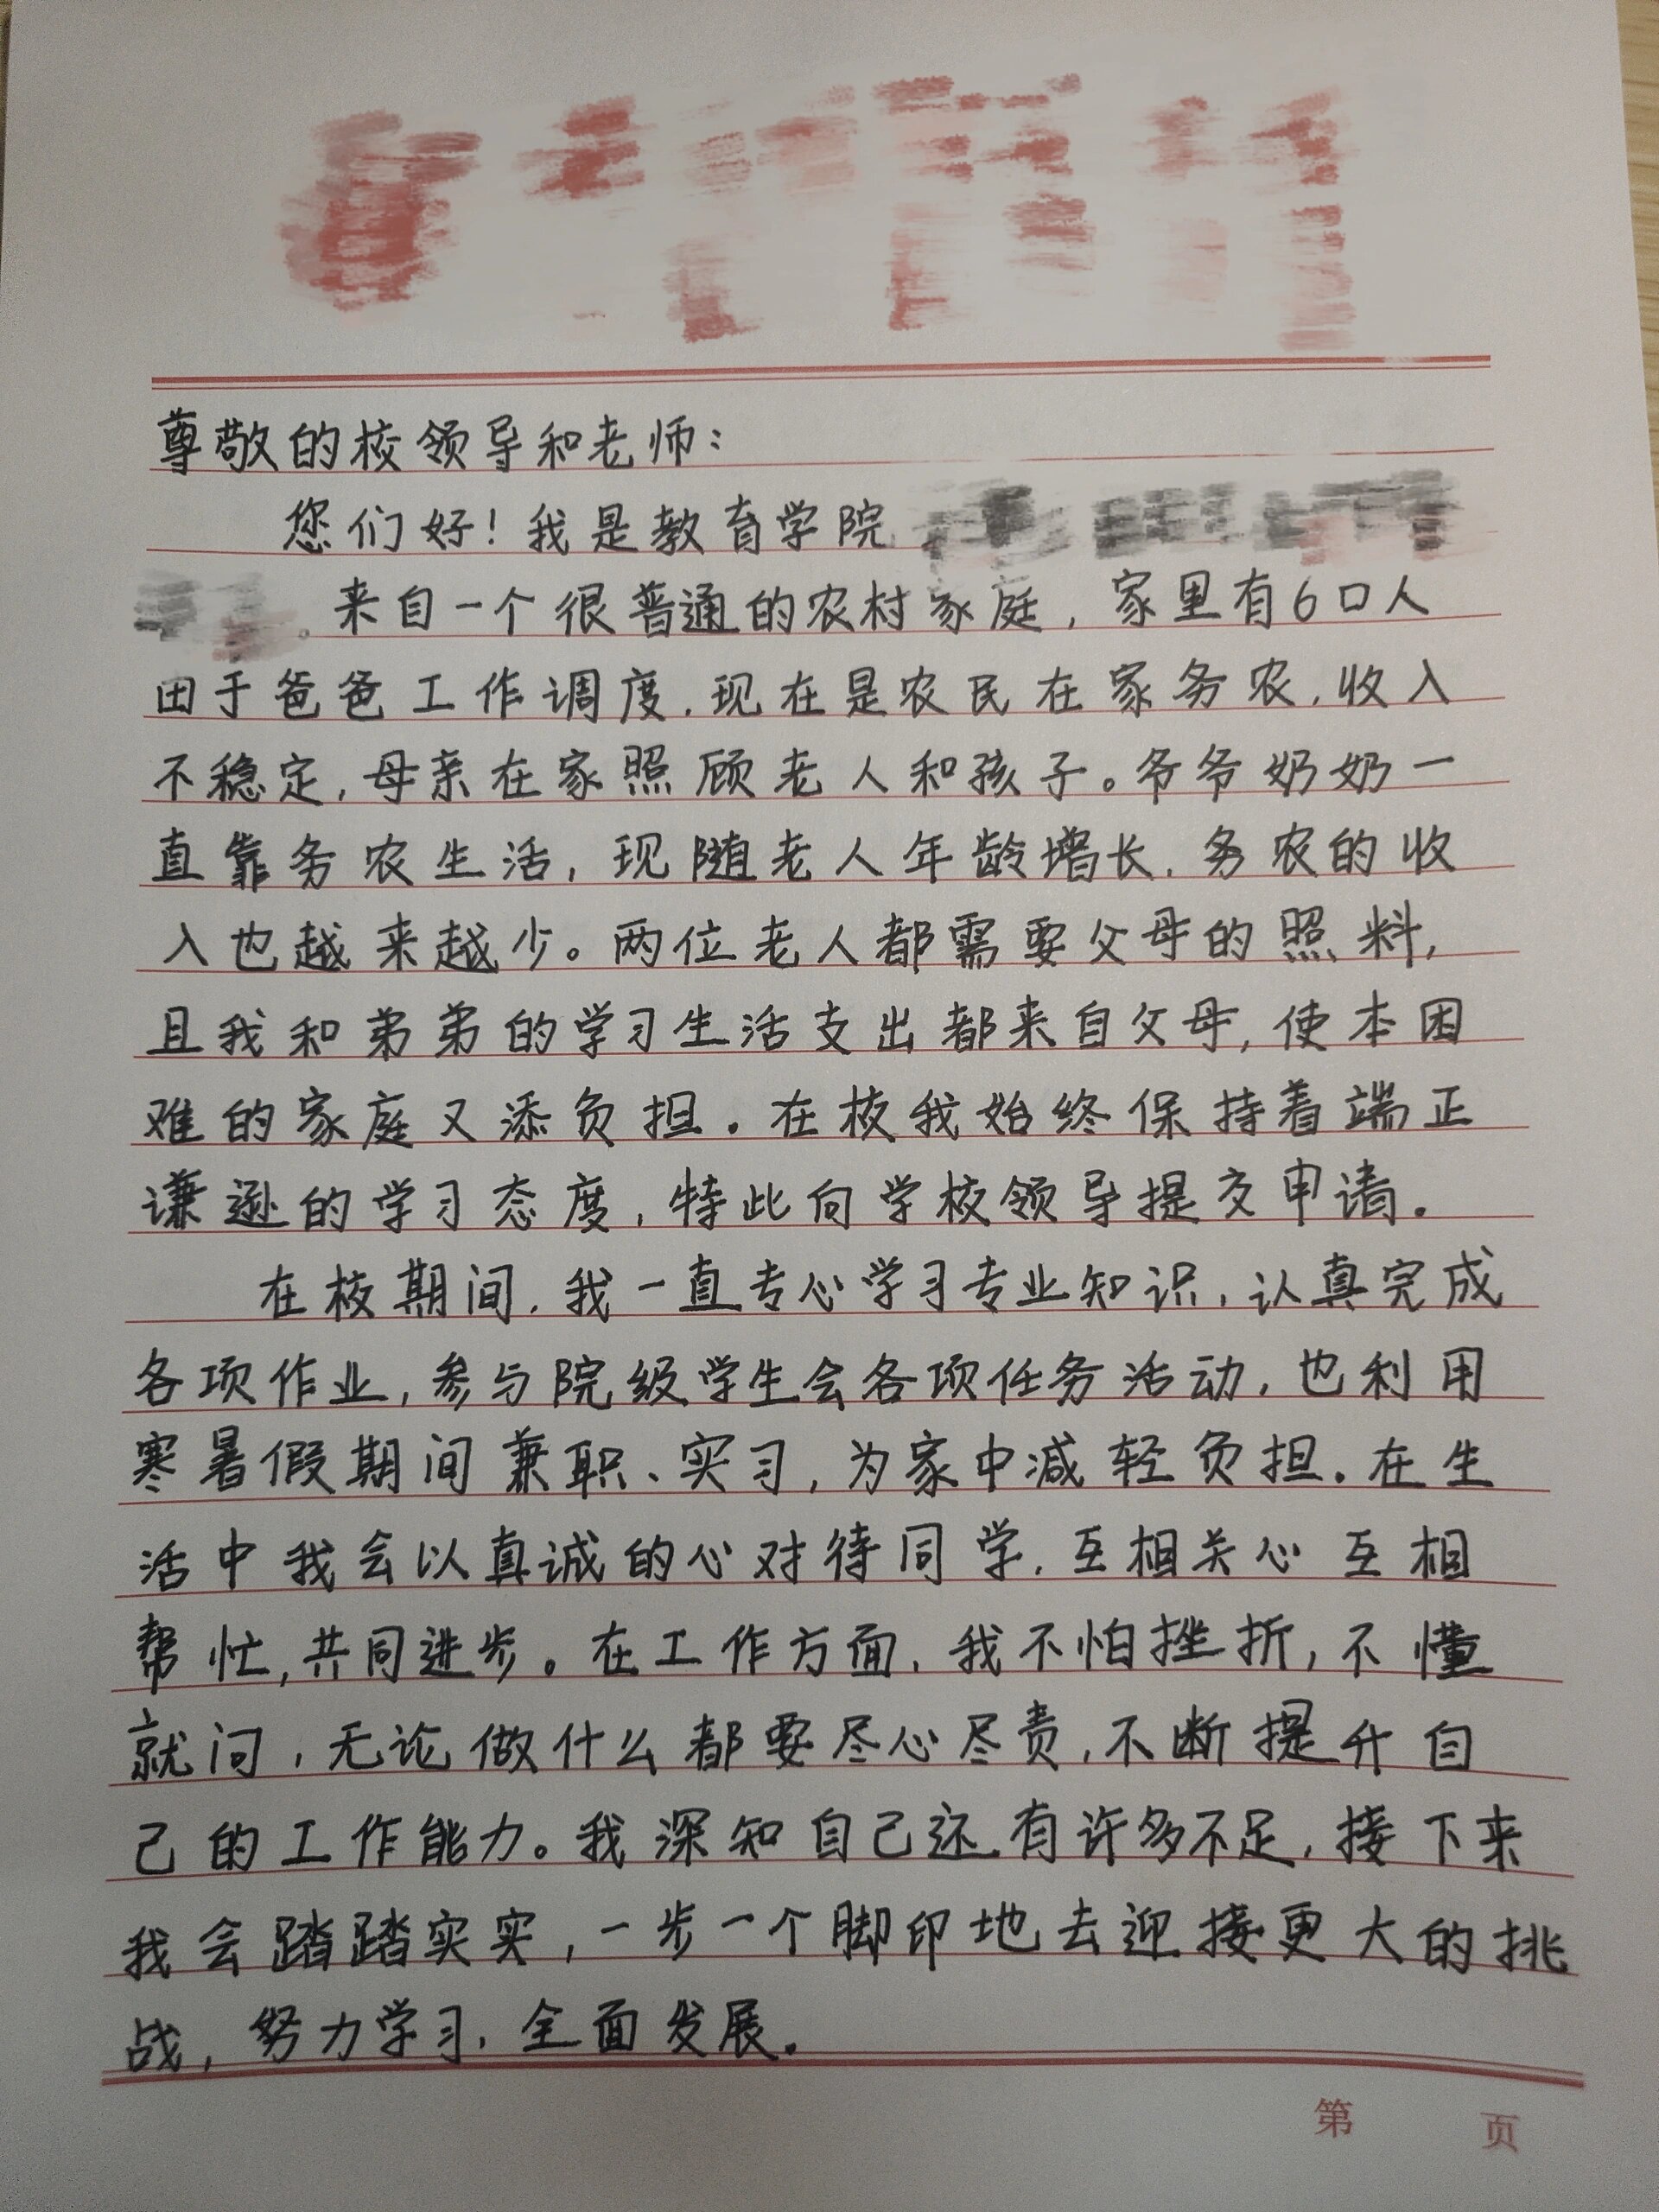 尊敬的校领导和老师：
您们好！我是教育学院
。来自一个很普通的农村家庭，家里有6口人
由于爸爸工作调度，现在是农民在家务农，收入
不稳定，母亲在家照顾老人和孩子。爷爷奶奶一
直靠务农生活，现随老人年龄增长，务农的收
入也越来越少。两位老人都需要父母的照料，
且我和弟弟的学习生活支出都来自父母，使本困
难的家庭又添负担。在校我始终保持着端正
谦逊的学习态度，特此向学校领导提交申请。
在校期间，我一直专心学习专业知识，认真完成
各项作业，参与院级学生会各项任务活动，也利用
寒暑假期间兼职、实习，为家中减轻负担。在生
活中我会以真诚的心对待同学，互相关心互相
帮忙，共同进步。在工作方面，我不怕挫折，不懂
就问，无论做什么都要尽心尽责，不断提升自
己的工作能力。我深知自己还有许多不足，接下来
我会踏踏实实，一步一个脚印地去迎接更大的挑
战，努力学习，全面发展。
第 页